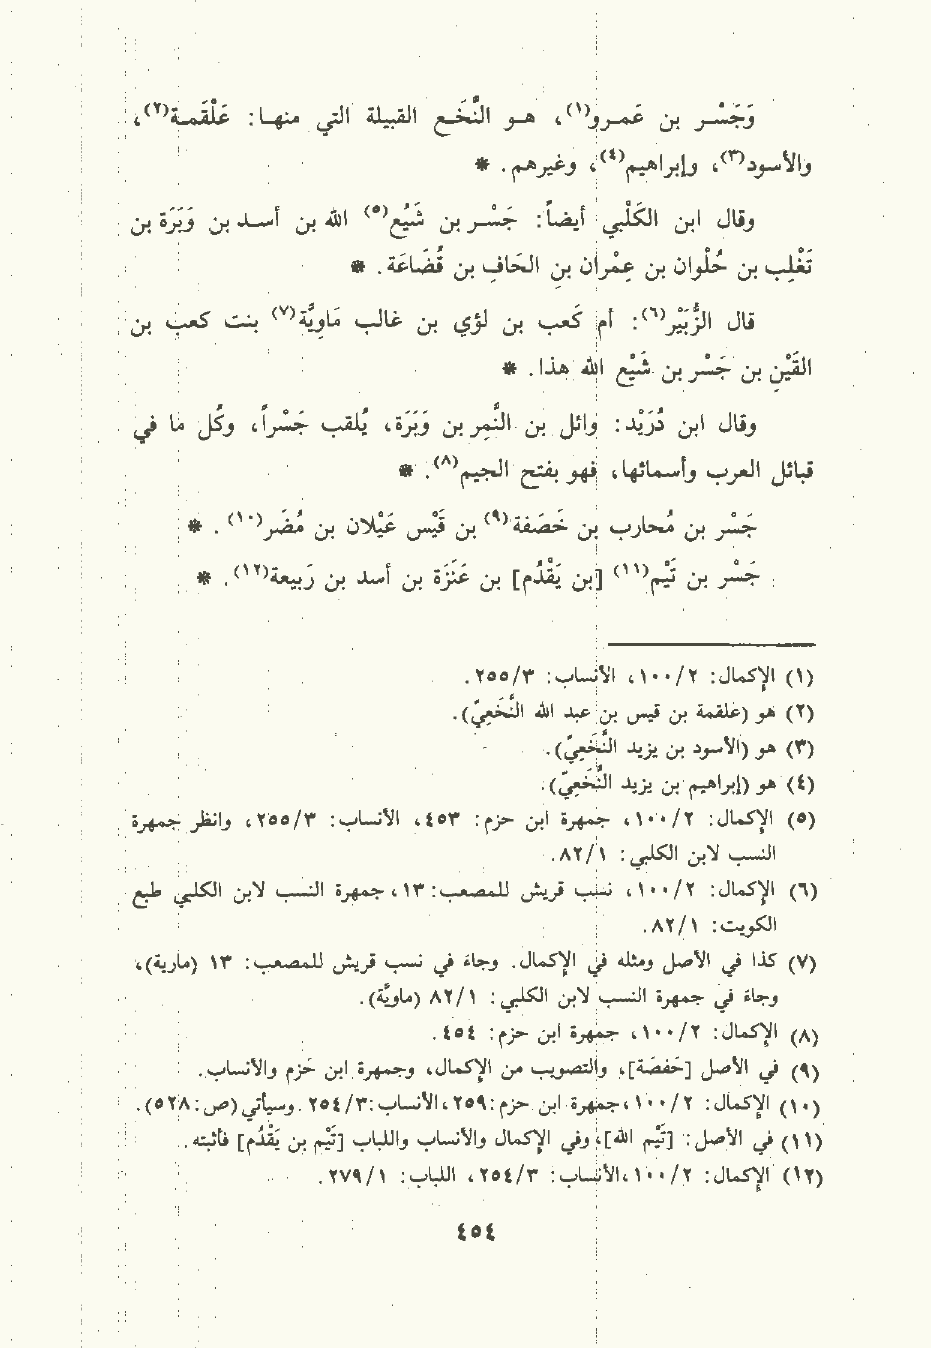 وَجَسْر بن عَمرو(١)، هو النَّخَع القبيلة التي منها: عَلْقَمة(٢)،
والأسود(٣)، وإبراهيم(٤)، وغيرهم. *
وقال ابن الكَلْبي أيضاً: جَسْر بن شَيْع(٥) الله بن أسد بن وَبَرَة بن
تَغْلِب بن حُلْوان بن عِمْران بن الحَافِ بن قُضَاعَة. *
قال الزُّبَيْر(٦): أم كَعب بن لؤي بن غالب مَاوِيَّة(٧) بنت كعب بن
القَيْنِ بن جَسْر بن شَيْع الله هذا. *
وقال ابن دُرَيْد: وائل بن النَّمِر بن وَبَرَة، يُلقب جَسْراً، وكُل ما في
قبائل العرب وأسمائها، فهو بفتح الجيم(٨). *
جَسْر بن مُحارب بن خَصَفة(٩) بن قَيْس عَيْلان بن مُضَر(١٠). *
جَسْر بن تَيْم(١١) [بن يَقْدُم] بن عَنَزَة بن أسد بن رَبيعة(١٢). *
(١) الإكمال: ١٠٠/٢، الأنساب: ٢٥٥/٣.
(٢) هو (علقمة بن قيس بن عبد الله النَّخَعِيّ).
(٣) هو (الأسود بن يزيد النَّخَعِيّ).
(٤) هو (إبراهيم بن يزيد النَّخَعِيّ).
(٥) الإكمال: ١٠٠/٢، جمهرة ابن حزم: ٤٥٣، الأنساب: ٢٥٥/٣، وانظر جمهرة
النسب لابن الكلبي: ٨٢/١.
(٦) الإكمال: ١٠٠/٢، نسب قريش للمصعب: ١٣، جمهرة النسب لابن الكلبي طبع
الكويت: ٨٢/١.
(٧) كذا في الأصل ومثله في الإكمال. وجاء في نسب قريش للمصعب: ١٣ (مارية)،
وجاء في جمهرة النسب لابن الكلبي: ٨٢/١ (ماويَّة).
(٨) الإكمال: ١٠٠/٢، جمهرة ابن حزم: ٤٥٤.
(٩) في الأصل [حَفصَة]، والتصويب من الإكمال، وجمهرة ابن حَزم والأنساب.
(١٠) الإكمال: ١٠٠/٢، جمهرة ابن حزم: ٢٥٩، الأنساب: ٢٥٤/٣. وسيأتي (ص: ٥٢٨).
(١١) في الأصل: [تَيْم الله]، وفي الإكمال والأنساب واللباب [تَيْم بن يَقْدُم] فأثبته.
(١٢) الإكمال: ١٠٠/٢، الأنساب: ٢٥٤/٣، اللباب: ٢٧٩/١.
٤٥٤